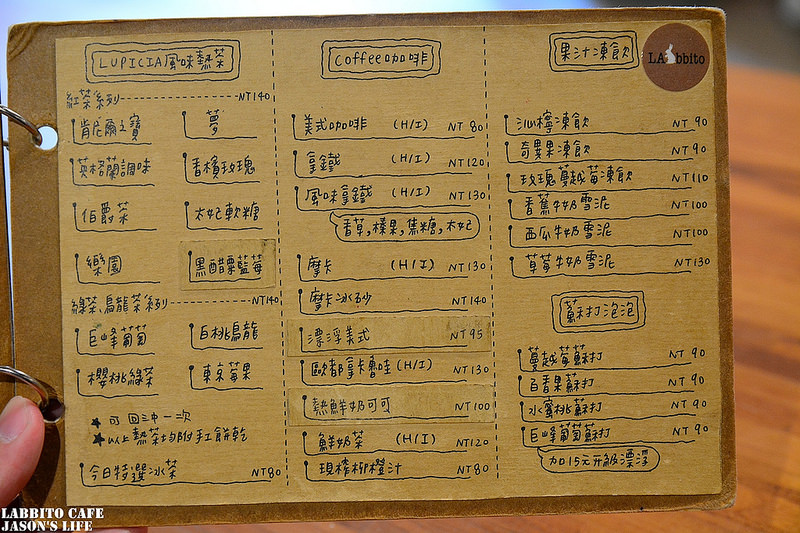 LUPICIA風味熱茶
紅茶系列 NT140
肯尼爾之寶 夢
英格蘭調味 香檳玫瑰
伯爵茶 太妃軟糖
樂園 黑醋栗藍莓
綠茶、烏龍茶系列 NT140
巨峰葡萄 白桃烏龍
櫻桃綠茶 東京莓果
★可回沖一次
★以上熱茶均附手工餅乾
今日特選冰茶 NT80
Coffee咖啡
美式咖啡 (H/I) NT 80
拿鐵 (H/I) NT120
風味拿鐵 (H/I) NT130
香草,榛果,焦糖,太妃
摩卡 (H/I) NT130
摩卡冰砂 NT140
漂浮美式 NT95
歐都拿卡魯哇(H/I) NT130
熱鮮奶可可 NT100
鮮奶茶 (H/I) NT120
現榨柳橙汁 NT80
果汁凍飲
LAbbito
沁檸凍飲 NT 90
奇異果凍飲 NT 90
玫瑰蔓越莓凍飲 NT110
香蕉牛奶雪泥 NT100
西瓜牛奶雪泥 NT100
草莓牛奶雪泥 NT130
蘇打泡泡
蔓越莓蘇打 NT 90
百香果蘇打 NT 90
水蜜桃蘇打 NT 90
巨峰葡萄蘇打 NT 90
加15元升級漂浮
LABBITO CAFE
JASON'S LIFE